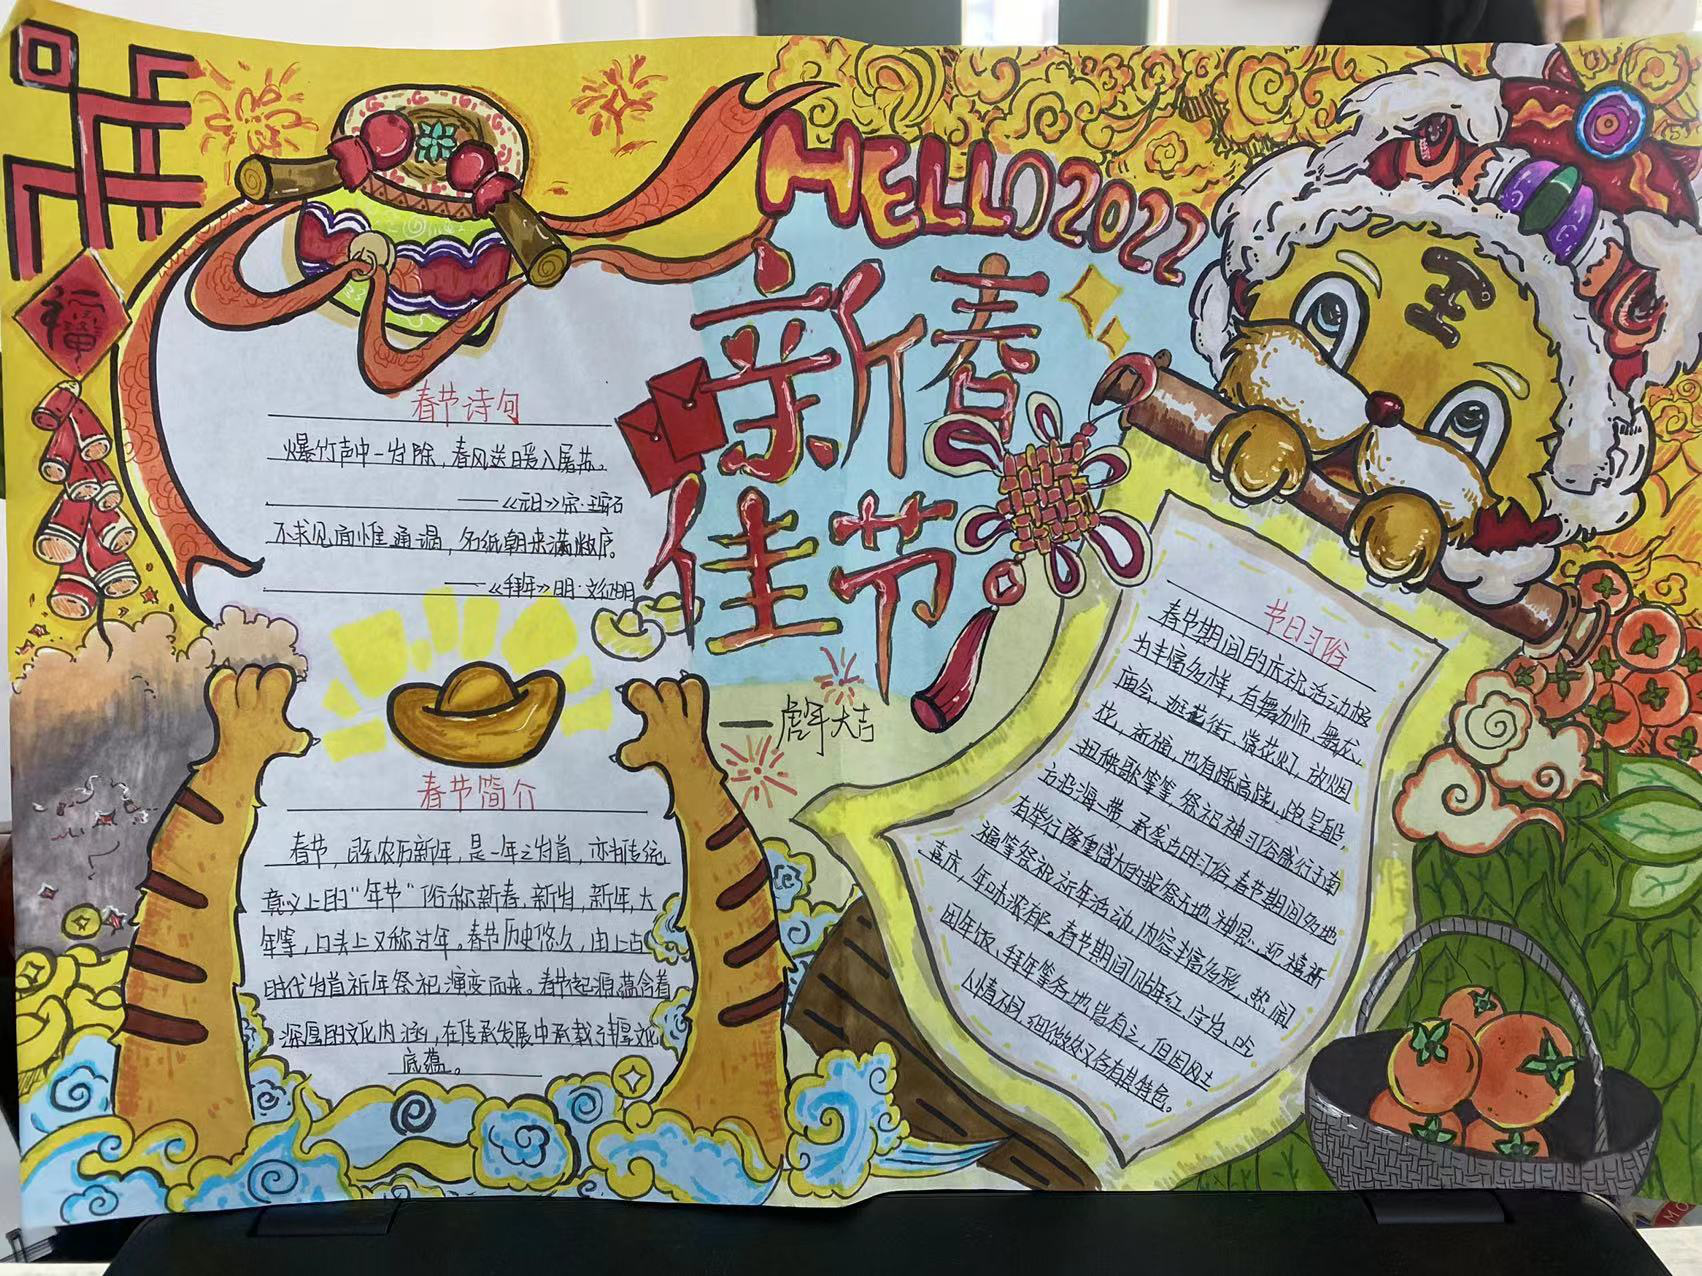 HELLO2022
新春
佳节
一虎年大吉
福
王
春节诗句
爆竹声中一岁除，春风送暖入屠苏。
——《元日》宋·王安石
不求见面惟通谒，名纸朝来满敝庐。
——《拜年》明·文征明
春节简介
春节，即农历新年，是一年之岁首，亦为传统
意义上的“年节”俗称新春，新岁，新年，大
年等，口头上又称过年。春节历史悠久，由上古
时代岁首祈年祭祀演变而来。春节起源蕴含着
深厚的文化内涵，在传承发展中承载了丰厚文化
底蕴。
节日习俗
春节期间的庆祝活动极
为丰富多样，有舞狮，舞龙，
庙会，逛花街，赏花灯，放烟
花，祈福，也有踩高跷，跑旱船，
扭秧歌等等，祭祀神习俗盛行于南
方沿海一带，承袭古时习俗，春节期间多地
有举行隆重盛大的报答天地神恩、迎禧祈
福等祭祝祈年活动，内容丰富多彩、热闹
喜庆，年味浓郁。春节期间贴年红，守岁，吃
团年饭，拜年等各地皆有之，但因风土
人情不同，细微处又各有其特色。